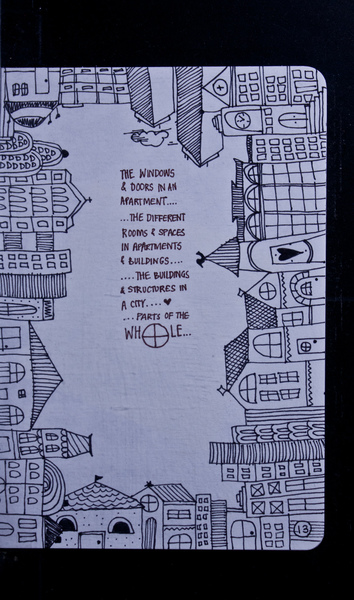 THE WINDOWS
& DOORS IN AN
APARTMENT....
...THE DIFFERENT
ROOMS & SPACES
IN APARTMENTS
& BUILDINGS....
....THE BUILDINGS
& STRUCTURES IN
A CITY.... ♥
...PARTS OF THE
WHOLE...
13